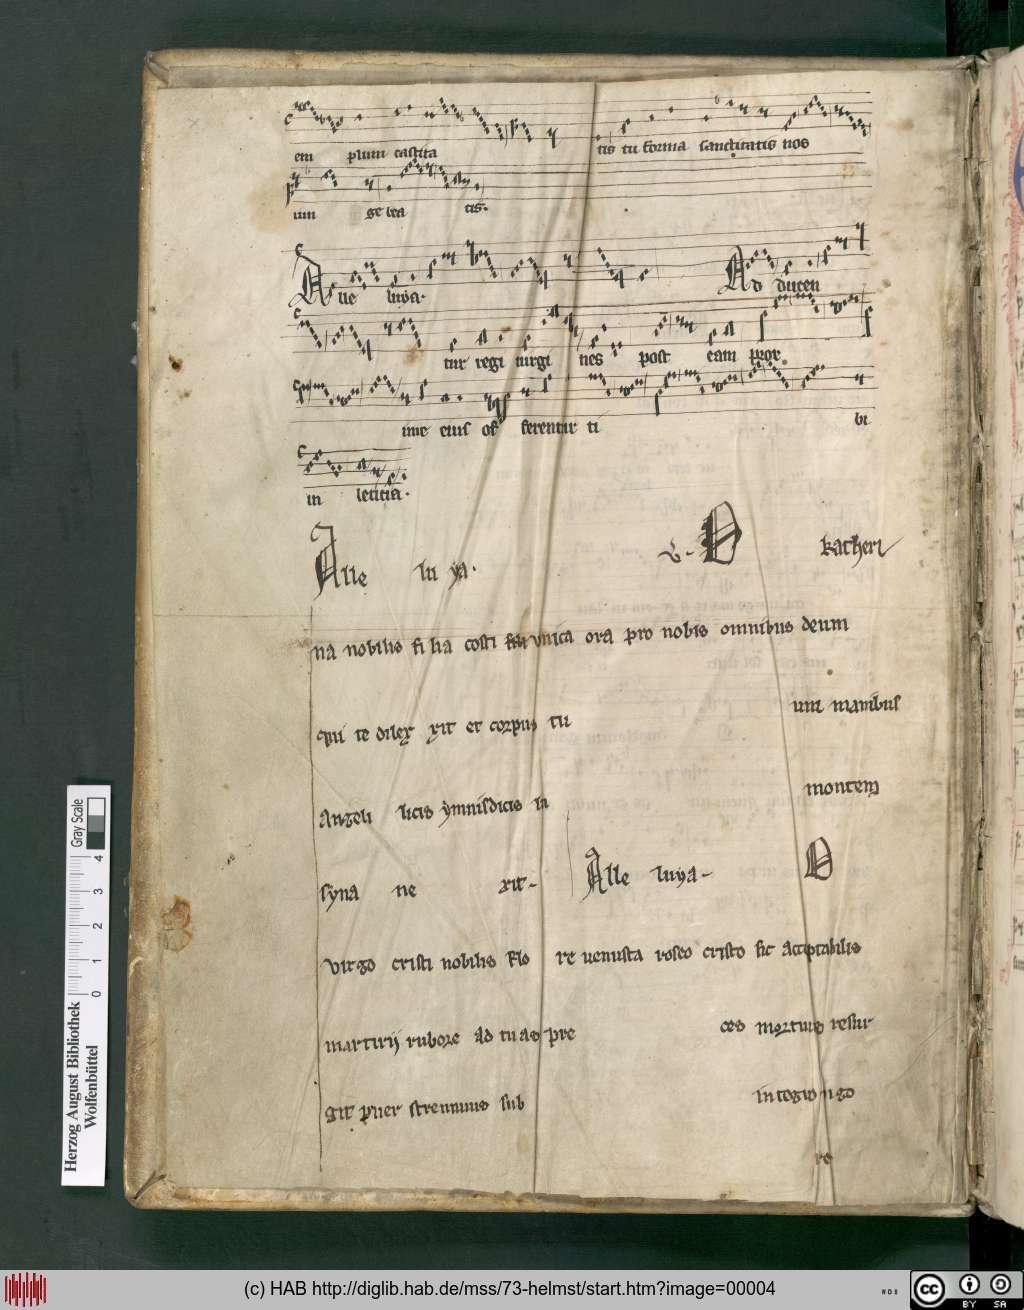 em plum castita tis tu forma sanctitatis nos
um ge bea tis.
Alle luya. Ad ducen
tur regi uirgi nes post eam prox
ime eius of ferentur ti bi
in leticia.
Alle lu ya. v. O katheri
na nobilis fi lia costi vnica ora pro nobis omnibus deum
qui te dilex xit et corpus tu um manibus
Angeli licis ymnisdicis in montem
syna ne xit- Alle luya- O
virgo cristi nobilis flo re uenusta roseo cristo sic acceptabilis
martirij rubore ad tuas pre ces mortuus resur
git puer strenuuus sub integro ui go
re
Herzog August Bibliothek
Wolfenbüttel
0 1 2 3 4
Gray Scale
(c) HAB http://diglib.hab.de/mss/73-helmst/start.htm?image=00004
WDB
cc BY SA